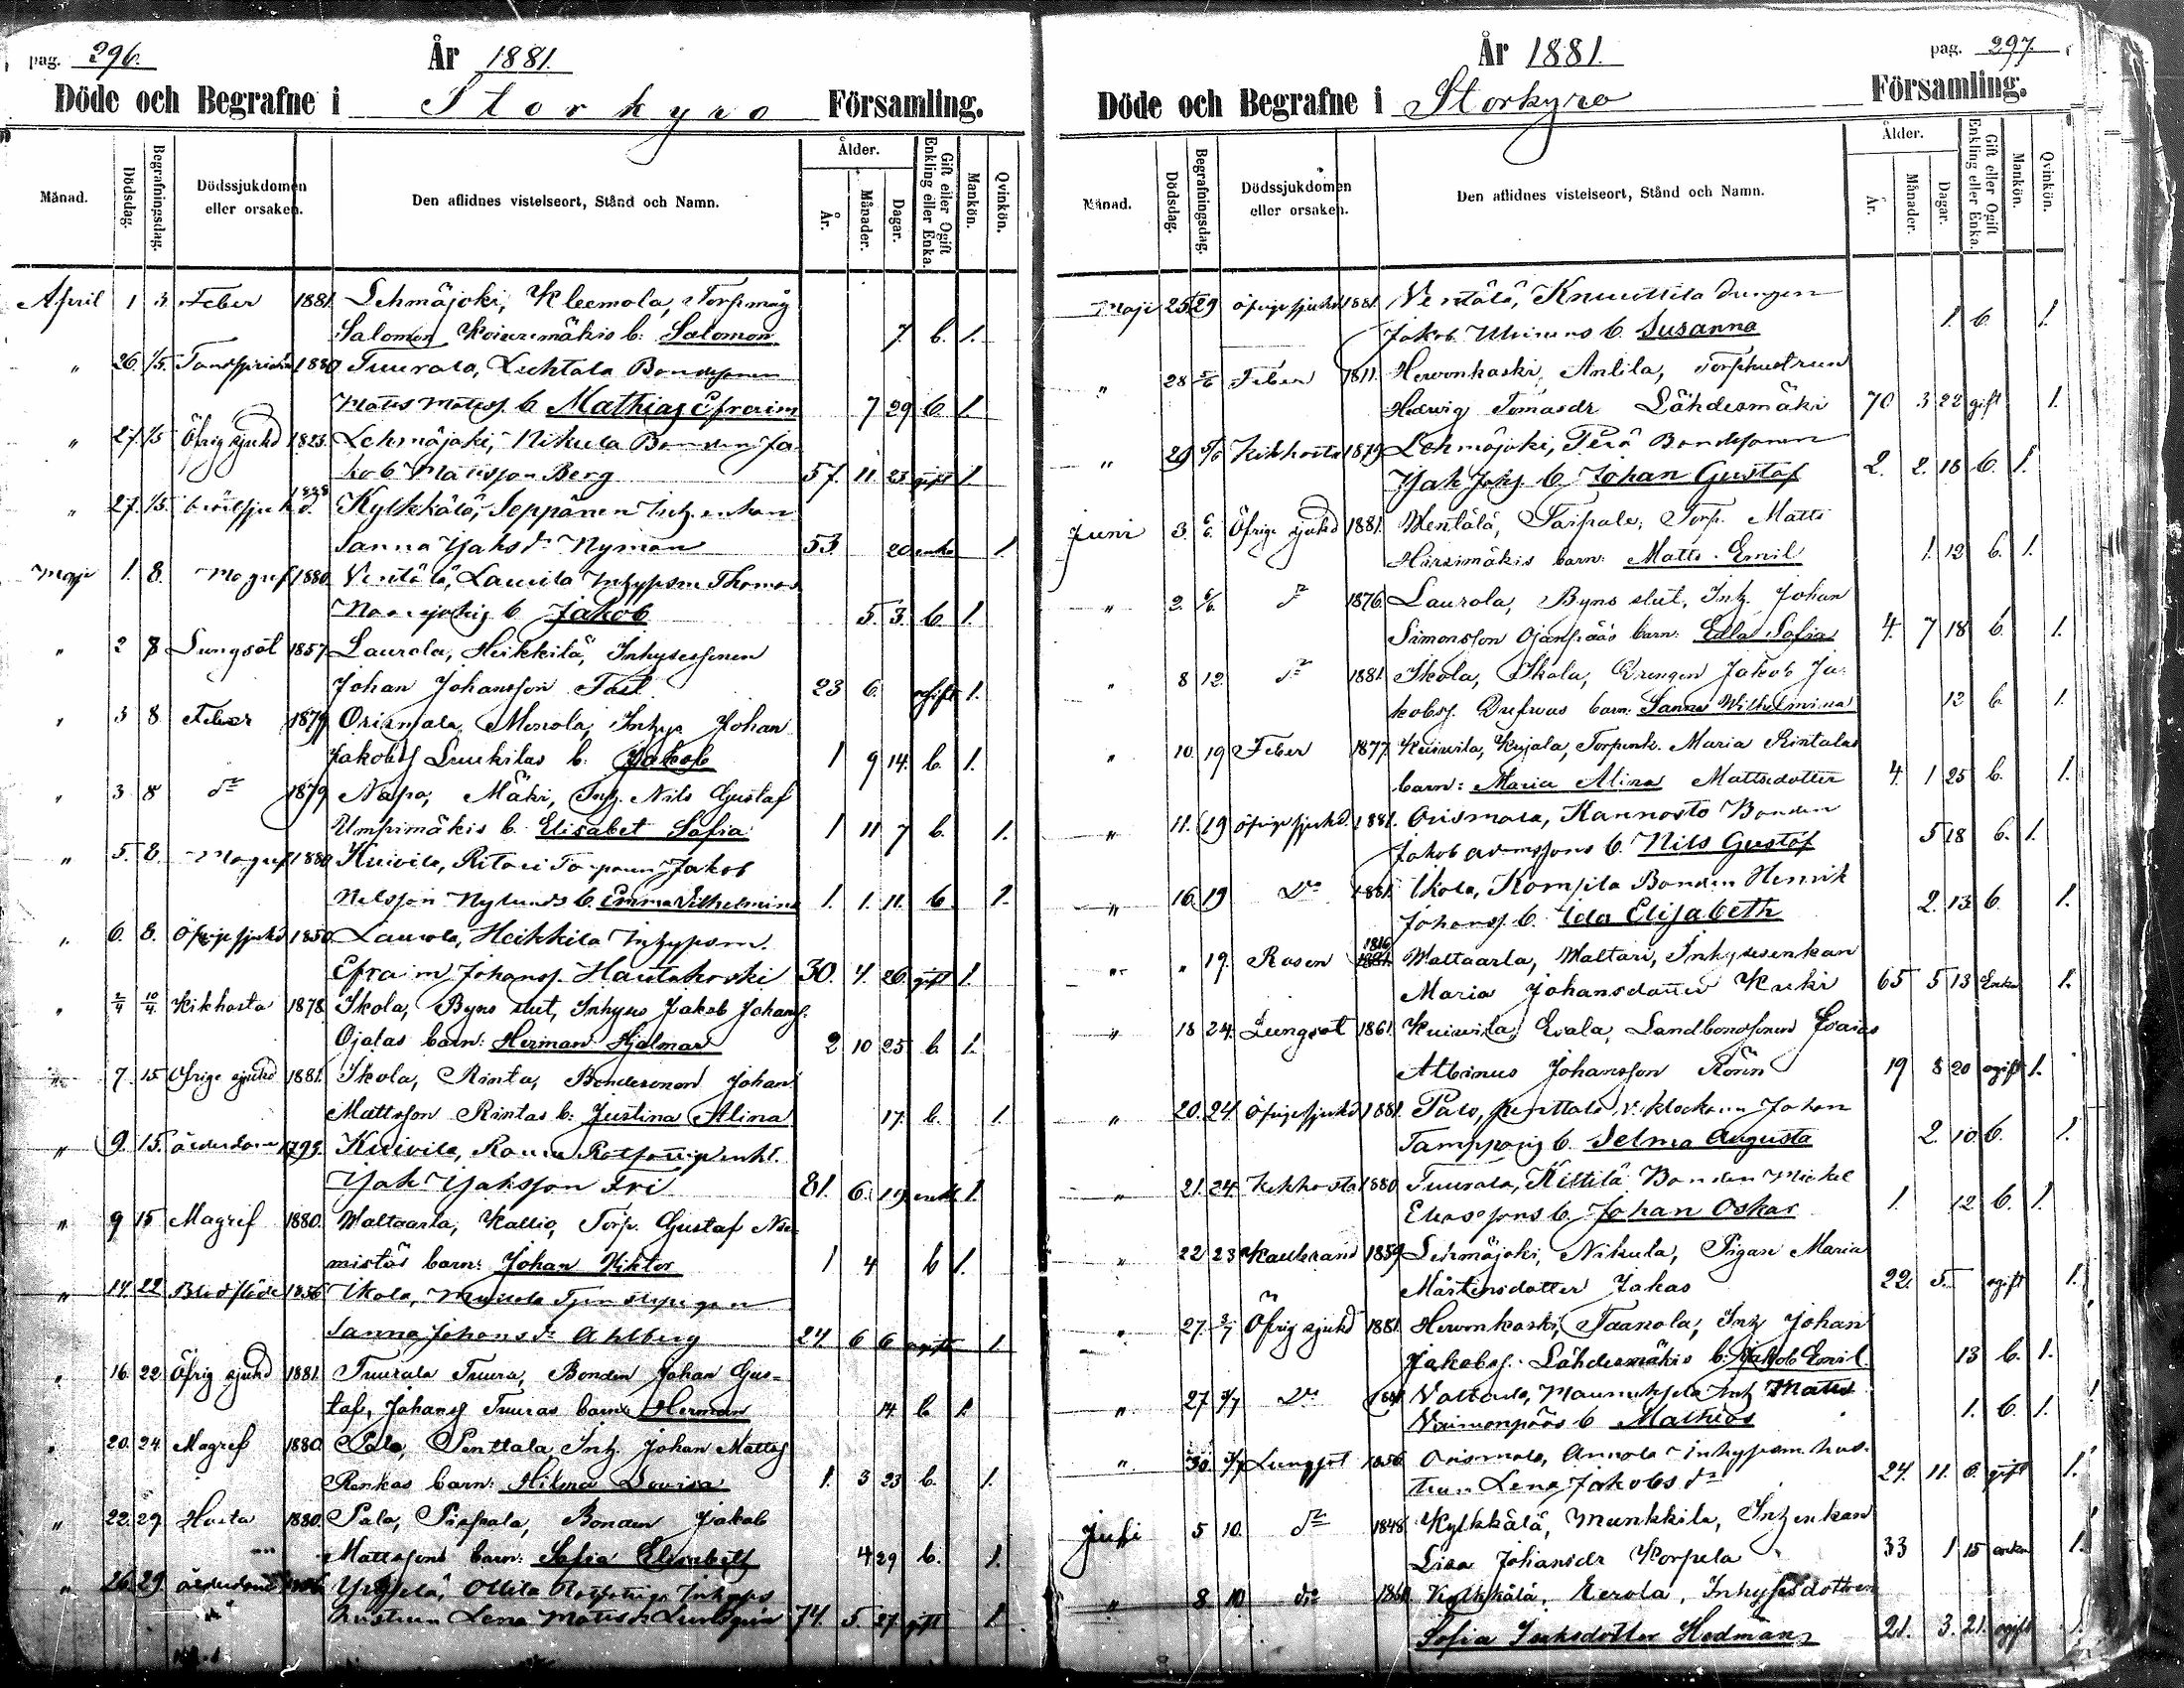 pag. 296.
År 1881.
Döde och Begrafne i Storkyro Församling.
Månad.
Dödsdag.
Begrafningsdag.
Dödssjukdomen eller orsaken.
Den aflidnes vistelseort, Stånd och Namn.
Ålder.
År.
Månader.
Dagar.
Gift eller Ogift Enkling eller Enka.
Mankön.
Qvinkön.
April 1 3 Feber 1881. Lehmäjoki, Kleemola, Torpmåg
Salomon b. Salomon 7 b. 1.
" 26. 1/5. 1880 Tuurala, Luhtala Bondesonen
Matts Mattss. b Mathias Efraim 7 29 b 1.
" 27. 1/5 Öfrig sjukd 1823. Lehmäjoki, Nikula Bonden Ja
kob Mattsson Berg 57. 11 23 gift 1.
" 27. 1/5. Kylkkälä, Seppänen Inh. enkan
Sanna Jaks dr Nyman 53 20 enka 1
Maji 1. 8. Magref 1880. Ventälä, Laurila Inhysm Thomas
b Jakob 5. 3. b. 1.
" 2 8 Lungsot 1857 Laurola, Heikkilä, Inhysessonen
Johan Johansson Fast 23 6. ogift 1.
" 3 8 Feber 1879 Orismala, Inhys Johan
Jakobss Luukilas b: Jakob 1 9 14. b. 1.
" 3 8 do 1879 Napo, Mäki, Inh. Nils Gustaf
Umpimäkis b. Elisabet Sofia 1 11 7 b. 1.
" 5. 8. Magref 1880 Kuivila, Ritari Torparen Jakob
Nilsson Nylunds b. Emma Vilhelmina 1. 1. 11. b. 1.
" 6. 8. Öfrige sjukd 1850 Laurola, Heikkila Inhysm.
Efraim Johanss. Hautakoski 30. 4. 26. gift 1.
" 2/4 10/4. Kikhosta 1878. Ikola, Byns slut, Inhyses Jakob Johanss.
Ojalas barn: Herman Hjalmar 2 10 25 b. 1.
" 7. 15 Öfrige sjukd 1881. Ikola, Rinta, Bondesonen Johan
Mattsson Rintas b: Justina Alina 17. b. 1.
" 9. 15. ålderdom 1799. Kuivila,
Jak Jaksson Fri 81. 6. 19 enkl 1.
" 9 15 Magref 1880. Waltaarla, Kallio, Torp. Gustaf Nie
mistös barn: Johan Viktor 1 4 b 1.
" 14. 22 Blodflöde 1856 Ikola,
Sanna Johans dr Ahlberg 24. 6 6 ogift 1
" 16. 22 Öfrig sjukd 1881. Tuurala Tuura, Bonden Johan Gus-
tafs, Johanss Tuuras barn: Herman 14 b 1.
" 20. 24. Magref 1880. Palo, Penttala Inh. Johan Mattss
Renkos barn: Hilma Lovisa 1. 3 23 b. 1.
" 22. 29 Hosta 1880. Palo, Bonden Jakob
Mattssons barn: Sofia Elisabeth 4 29 b. 1.
" 26. 29 ålderdom Ollila Inhyses
hustrun Lena Matts dr 74. 5. 27. gift 1.
pag. 297.
År 1881.
Döde och Begrafne i Storkyro Församling.
Månad.
Dödsdag.
Begrafningsdag.
Dödssjukdomen eller orsaken.
Den aflidnes vistelseort, Stånd och Namn.
Ålder.
År.
Månader.
Dagar.
Gift eller Ogift Enkling eller Enka.
Mankön.
Qvinkön.
Maji 25. 29 öfrige sjukd 1881. Ventälä, Knuuttila Drengen
Jakob b. Susanna 1. b. 1.
" 28 5/6 Feber 1811. Hevonkoski, Anlila, Torphustrun
Hedvig Tomasdr Lähdesmäki 70 3 22 gift 1.
" 29 5/6 Kikhosta 1879 Lehmäjoki, Perä Bondesonen
Jak Jaks b. Johan Gustaf 2. 2. 18 b. 1.
Juni 3. 6/6. Öfrige sjukd 1881. Wentälä, Taipale, Torp. Matts
Hirsimäkis barn: Matts Emil 1. 12 b. 1.
" 2. 6/6. do 1876. Laurola, Byns slut, Inh. Johan
Simonsson Ojanpääs barn: Edla Sofia 4. 7 18 b. 1.
" 8 12. do 1881 Ikola, Ikola, Drengen Jakob Ja-
kobss. barn: Sanna Wilhelmina 12 b. 1.
" 10. 19 Feber 1877 Kuivila, Kujala, Torpenk. Maria Rintalas
barn: Maria Alina Mattsdotter 4 1 25 b. 1.
" 11. 19 öfrige sjukd. 1881. Orismala, Kannosto Bonden
Jakob b. Nils Gustaf 5 18 b. 1.
" 16 19 Do 1881. Ikola, Kompila Bonden Henrik
Johanss. b. Ida Elisabeth 2. 13 b. 1.
" " 19. Rosen 1816 Waltaarla, Waltari, Inhysesenkan
Maria Johansdotter Kuki 65 5 13 Enka 1.
" 18 24. Lungsot 1861 Kuivila, Evala, Landbondsonen Esaias
Albinus Johansson Rönn 19 8 20 ogift 1.
" 20. 24. Öfrige sjukd 1881. Palo, Penttala, v. klockaren Johan
b. Selma Augusta 2. 10 b. 1.
" 21. 24. Kikhosta 1880 Tuurala, Kittilä Bonden Mickel
Eliassons b. Johan Oskar 1. 12 b. 1.
" 22 23 Kallbrand 1859 Lehmäjoki, Nikula, Pigan Maria
Mårtensdotter Jakas 22. 5. ogift 1.
" 27. 3/7 Öfrig sjukd 1881. Hevonkoski, Taanola, Inh Johan
Jakobss. Lähdesmäkis b. Jakob Emil 13 b. 1.
" 27 3/7 Do Inh Matts
b Mathias 1. b. 1.
" 30. 3/7 Lungsot 1856 Orismala, Annola Inhysm hus-
trun Lena Jakobs dr 24. 11. 6. gift 1.
Juli 5 10. do 1848. Kylkkälä, Munkkila, Inh enkan
Lisa Johansdr Korpela 33 1 15 enka 1.
" 8 10. do 1860 Kylkkälä, Eerola, Inhysesdottren
Sofia Isaksdotter Hedman 21. 3. 21. ogift 1.